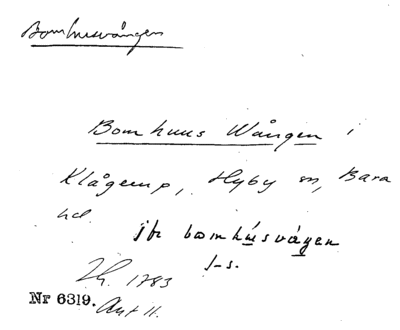 Bomhusvången
Bom huus Wången i
Klågerup, Hyby sn, Bara
hd.
jfr bomhúsvágen
J-s.
1783
Nr 6319. Avt 11.